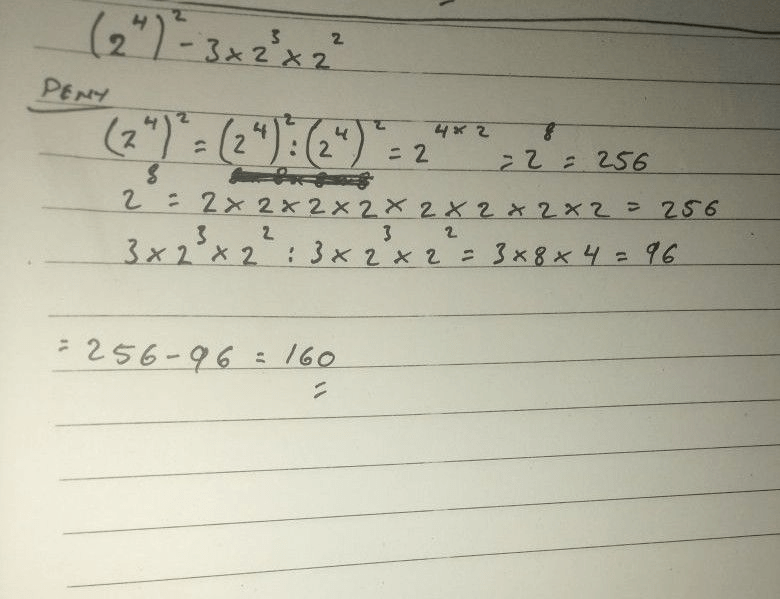 (2⁴)² - 3 × 2³ × 2²
PENY
(2⁴)² = (2⁴)² : (2⁴)² = 2⁴ˣ² = 2⁸ = 256
2⁸ = 2 × 2 × 2 × 2 × 2 × 2 × 2 × 2 = 256
3 × 2³ × 2² : 3 × 2³ × 2² = 3 × 8 × 4 = 96
= 256 - 96 = 160
=